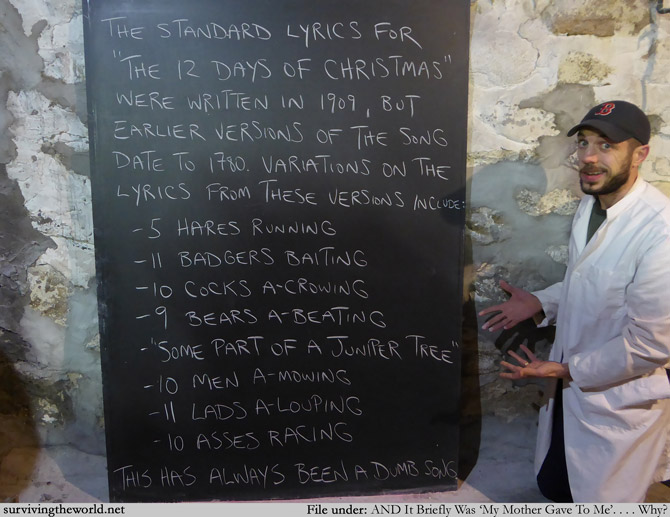 THE STANDARD LYRICS FOR
"THE 12 DAYS OF CHRISTMAS"
WERE WRITTEN IN 1909, BUT
EARLIER VERSIONS OF THE SONG
DATE TO 1780. VARIATIONS ON THE
LYRICS FROM THESE VERSIONS INCLUDE:
-5 HARES RUNNING
-11 BADGERS BAITING
-10 COCKS A-CROWING
-9 BEARS A-BEATING
-"SOME PART OF A JUNIPER TREE"
-10 MEN A-MOWING
-11 LADS A-LOUPING
-10 ASSES RACING
THIS HAS ALWAYS BEEN A DUMB SONG
B
survivingtheworld.net
File under: AND It Briefly Was 'My Mother Gave To Me'. . . . Why?